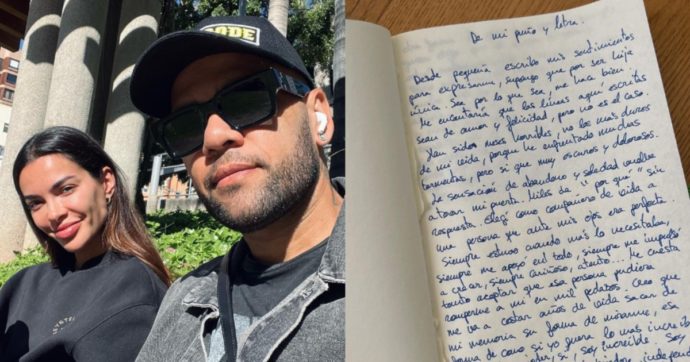 CODE
De mi puño y letra.
Desde pequeña escribo mis sentimientos
para expresarme, supongo que por ser hija
única. Sea por lo que sea, me hace bien.
Me encantaría que las líneas aquí escritas
sean de amor y felicidad, pero no es el caso.
Han sidos meses horribles, no los más duros
de mi vida, porque he enfrentado muchas
tormentas, pero si que muy oscuros y dolorosos.
La sensación de abandono y soledad vuelve
a tocar mi puerta. Miles de "por qué" sin
respuesta. elegí como compañero de vida a
una persona que ante mis ojos era perfecta.
Siempre estuvo cuando más lo necesitaba,
siempre me apoyó en todo, siempre me impulsó
a crear, siempre cariñoso, atento... Me cuesta
tanto aceptar que esa persona pudiera
romperme a mi en mil pedazos. Creo que
me va a costar años de vida sacar de
mi memoria su forma de mirarme, su
forma de como si yo fuera lo más
soy increíble. Soy